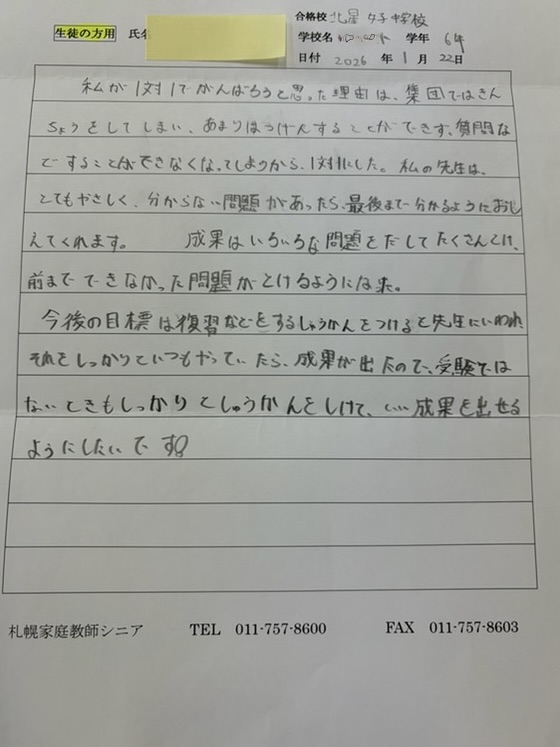 合格校 北星女子中学校
生徒の方用 氏名
学校名 学年 6年
日付 2026 年 1 月 22日
私が1対1でがんばろうと思った理由は、集団ではきん
ちょうをしてしまい、あまりはっけんすることができず、質問な
どすることができなくなってしまうから、1対1にした。私の先生は、
とてもやさしく、分からない問題があったら、最後まで分かるようにおし
えてくれます。 成果はいろいろな問題をだしてたくさんとけ、
前まで できなかった問題がとけるようになった。
今後の目標は復習などをするしゅうかんをつけると先生にいわれ
それをしっかりといつもやっていたら、成果が出たので、受験では
ないときもしっかりとしゅうかんをしけて、 成果を出せる
ようにしたいです
札幌家庭教師シニア TEL 011-757-8600 FAX 011-757-8603